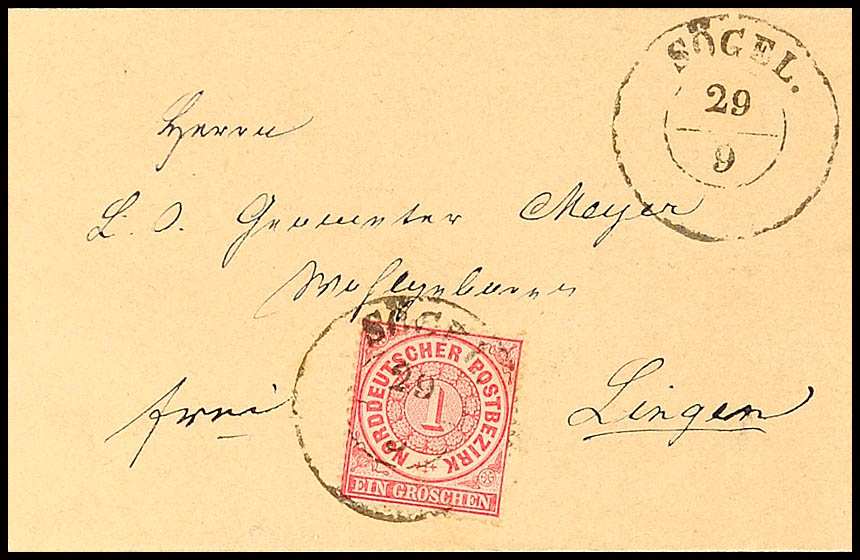 SÖGEL.
29
9
Herrn
L. O. Geometer Meyer
Wohlgeboren
SÖGEL
29
NORDDEUTSCHER POSTBEZIRK
1
EIN GROSCHEN
frei
Lingen